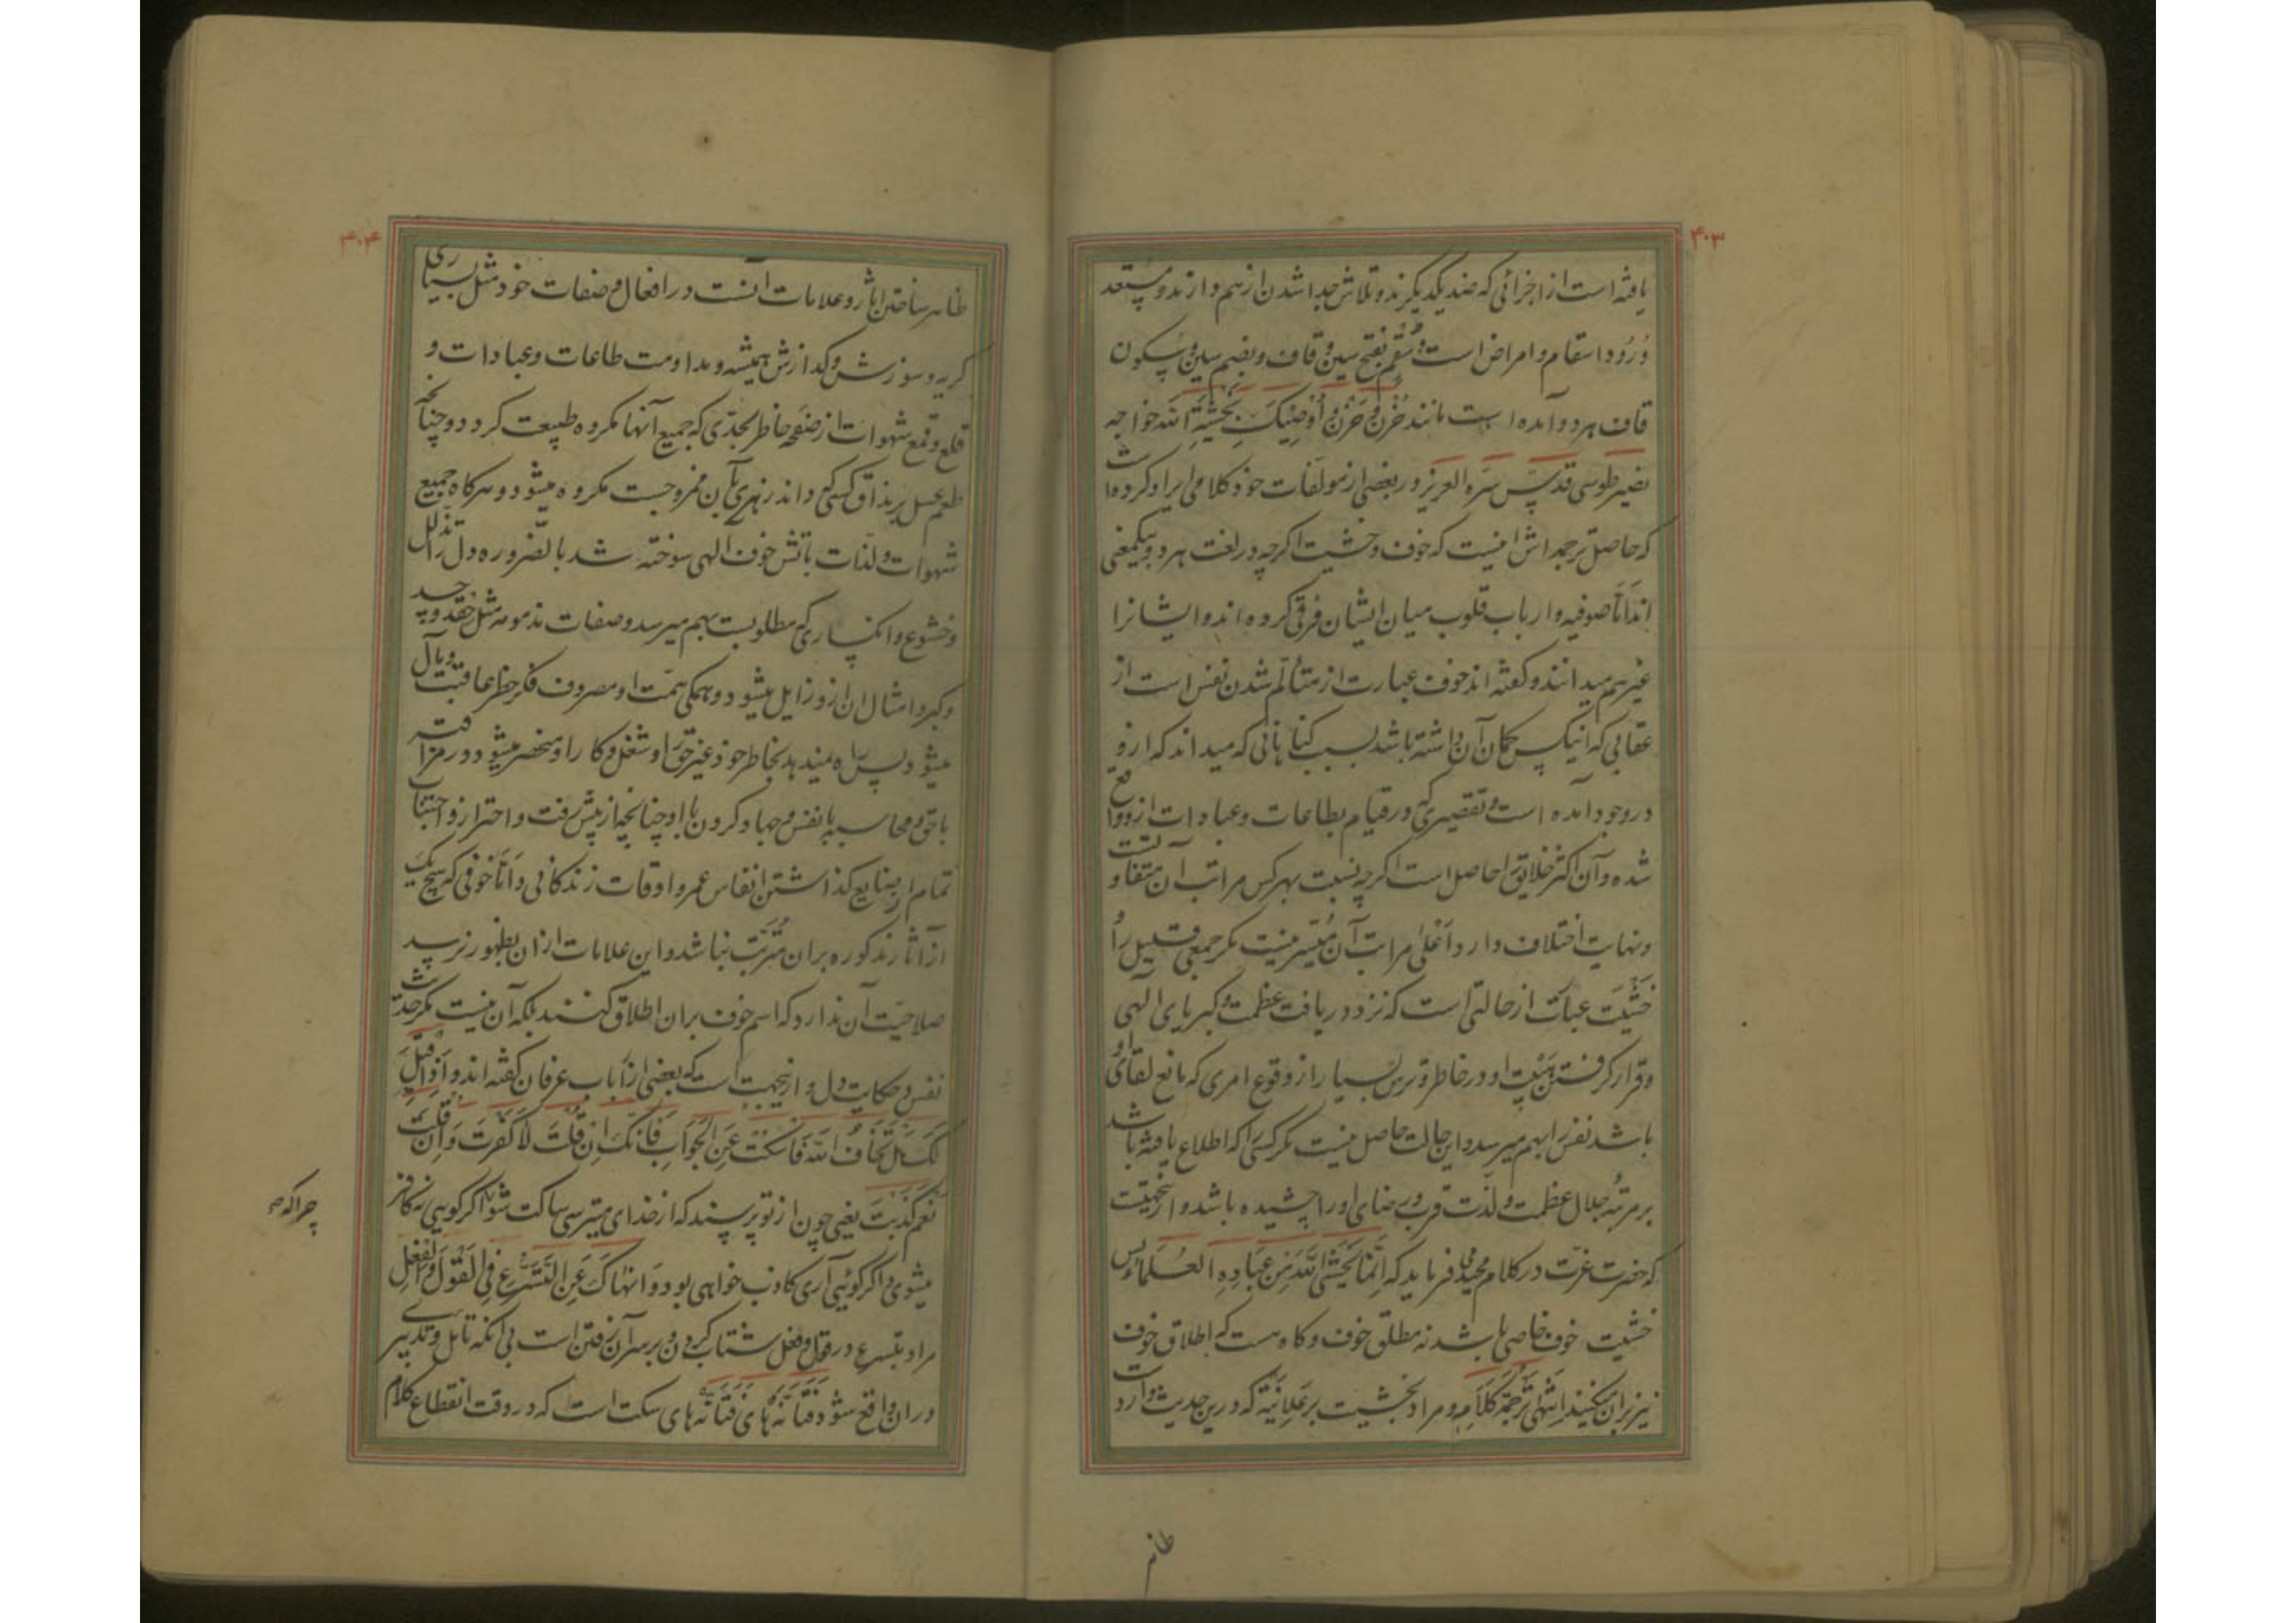 ۴۰۳
یافته است از اجزائی که ضد یکدیگرند و تلاش جدا شدن از هم دارند و مستعد
ورود اسقام و امراض است و سُقم بفتح سین و قاف و بضم سین و سکون
قاف هر دو آمده است مانند حُزن و حَزَن و أُوصِیکَ بِخَشْیَةِ اللهِ خواجه
نصیر طوسی قدس سره العزیز در بعضی از مولفات خود کلامی ایراد کرده است
که حاصل ترجمه اش اینست که خوف و خشیت اگرچه در لغت هر دو بیکمعنی
اند اما صوفیه و ارباب قلوب میان ایشان فرق کرده اند و ایشانرا
غیر هم میدانند و گفته اند خوف عبارت از متألم شدن نفس است از
عقابی که آنکس گمان آن داشته باشد بسبب گناهانی که میداند که ازو
در وجود آمده است و تقصیری که در قیام بطاعات و عبادات ازو واقع
شده و آن اکثر خلایق را حاصل است اگرچه نسبت بهر کس مراتب آن متفاوتست
و نهایت اختلاف دارد و اَعْلی مراتب آن مُیَسّر نیست مگر جمعی قلیل را و
خَشْیَت عبارت از حالتی است که نزد دریافت عظمت و کبریای الهی
و قرار گرفتن هَیْبَت او در خاطر و ترس بسیار از وقوع امری که مانع لقای او
باشد نفس را بهم میرسد و این حالت حاصل نیست مگر کسی را که اطلاع یافته باشد
بر مرتبه جلال عظمت و لذت قرب و رضای او را چشیده باشد و ازینجهتست
که حضرت عزت در کلام مجید می فرماید که إِنَّمَا یَخْشَی اللهَ مِنْ عِبَادِهِ العُلَمَاءُ پس
خشیت خوف خاصی باشد نه مطلق خوف و گاه هست که اطلاق خوف
نیز بران میکنند اِنْتَهی تَرْجَمَةُ کَلَامِهِ و مراد بخشیت بر عَلانِیَة که درین حدیث وارد است
ظاهر
۴۰۴
ظاهر ساختن آثار و علامات آنست در افعال و صفات خود مثل بسیاری
گریه و سوزش و گدازش همیشه و مداومت طاعات و عبادات و
قلع و قمع شهوات از صفحه خاطر بحدّی که جمیع آنها مکروه طبیعت گردد چنانچه
طعم عسل بمذاق کسی که داند زهری بآن ممزوجست مکروه میشود و هرگاه جمیع
شهوات و لذات بآتش خوف الهی سوخته شد بالضّروره دل را تذلل
و خشوع و انکساری که مطلوبست بهم میرسد و صفات مذمومه مثل حقد و حسد
و کبر و امثال آن ازو زایل میشود و همگی همّت او مصروف فکر خطر عاقبت و مآل
میشود پس راه نمیدهد بخاطر خود غیر حق را و شغل و کار او منحصر میشود در مراقبه
با حق و محاسبه با نفس و جهاد کردن با او چنانچه از پیش رفت و احتراز و اجتناب
تمام از ضایع گذاشتن انفاس عمر و اوقات زندگانی و امّا خوفی که هیچ یک
از آثار مذکوره بران مترتّب نباشد و این علامات ازان بظهور نرسد
صلاحیت آن ندارد که اسم خوف بران اطلاق کنند بلکه آن نیست مگر حدیث
نفس و حکایت دل و ازینجهت است که بعضی ارباب عرفان گفته اند و اِذَا قِیلَ
لَکَ هَلْ تَخَافُ اللهَ فَاسْکُتْ عَنِ الْجَوَابِ فَاِنَّکَ اِنْ قُلْتَ لَا کَفَرْتَ وَ اِنْ قُلْتَ
نَعَمْ کَذَبْتَ یعنی چون از تو پرسند که از خدای میترسی ساکت شو اگر گویی نه کافر
چرا که
میشوی و اگر گوئی آری کاذب خواهی بود وَ اَنْهَاکَ عَنِ التَّسَرُّعِ فِی الْقَوْلِ وَ الْفِعْلِ
مراد بتسرع در قول و فعل شتاب کردن و بر سر آن رفتن است بی آنکه تأمل و تدبیری
دران واقع شود هَای سکت است که در وقت انقطاع کلام